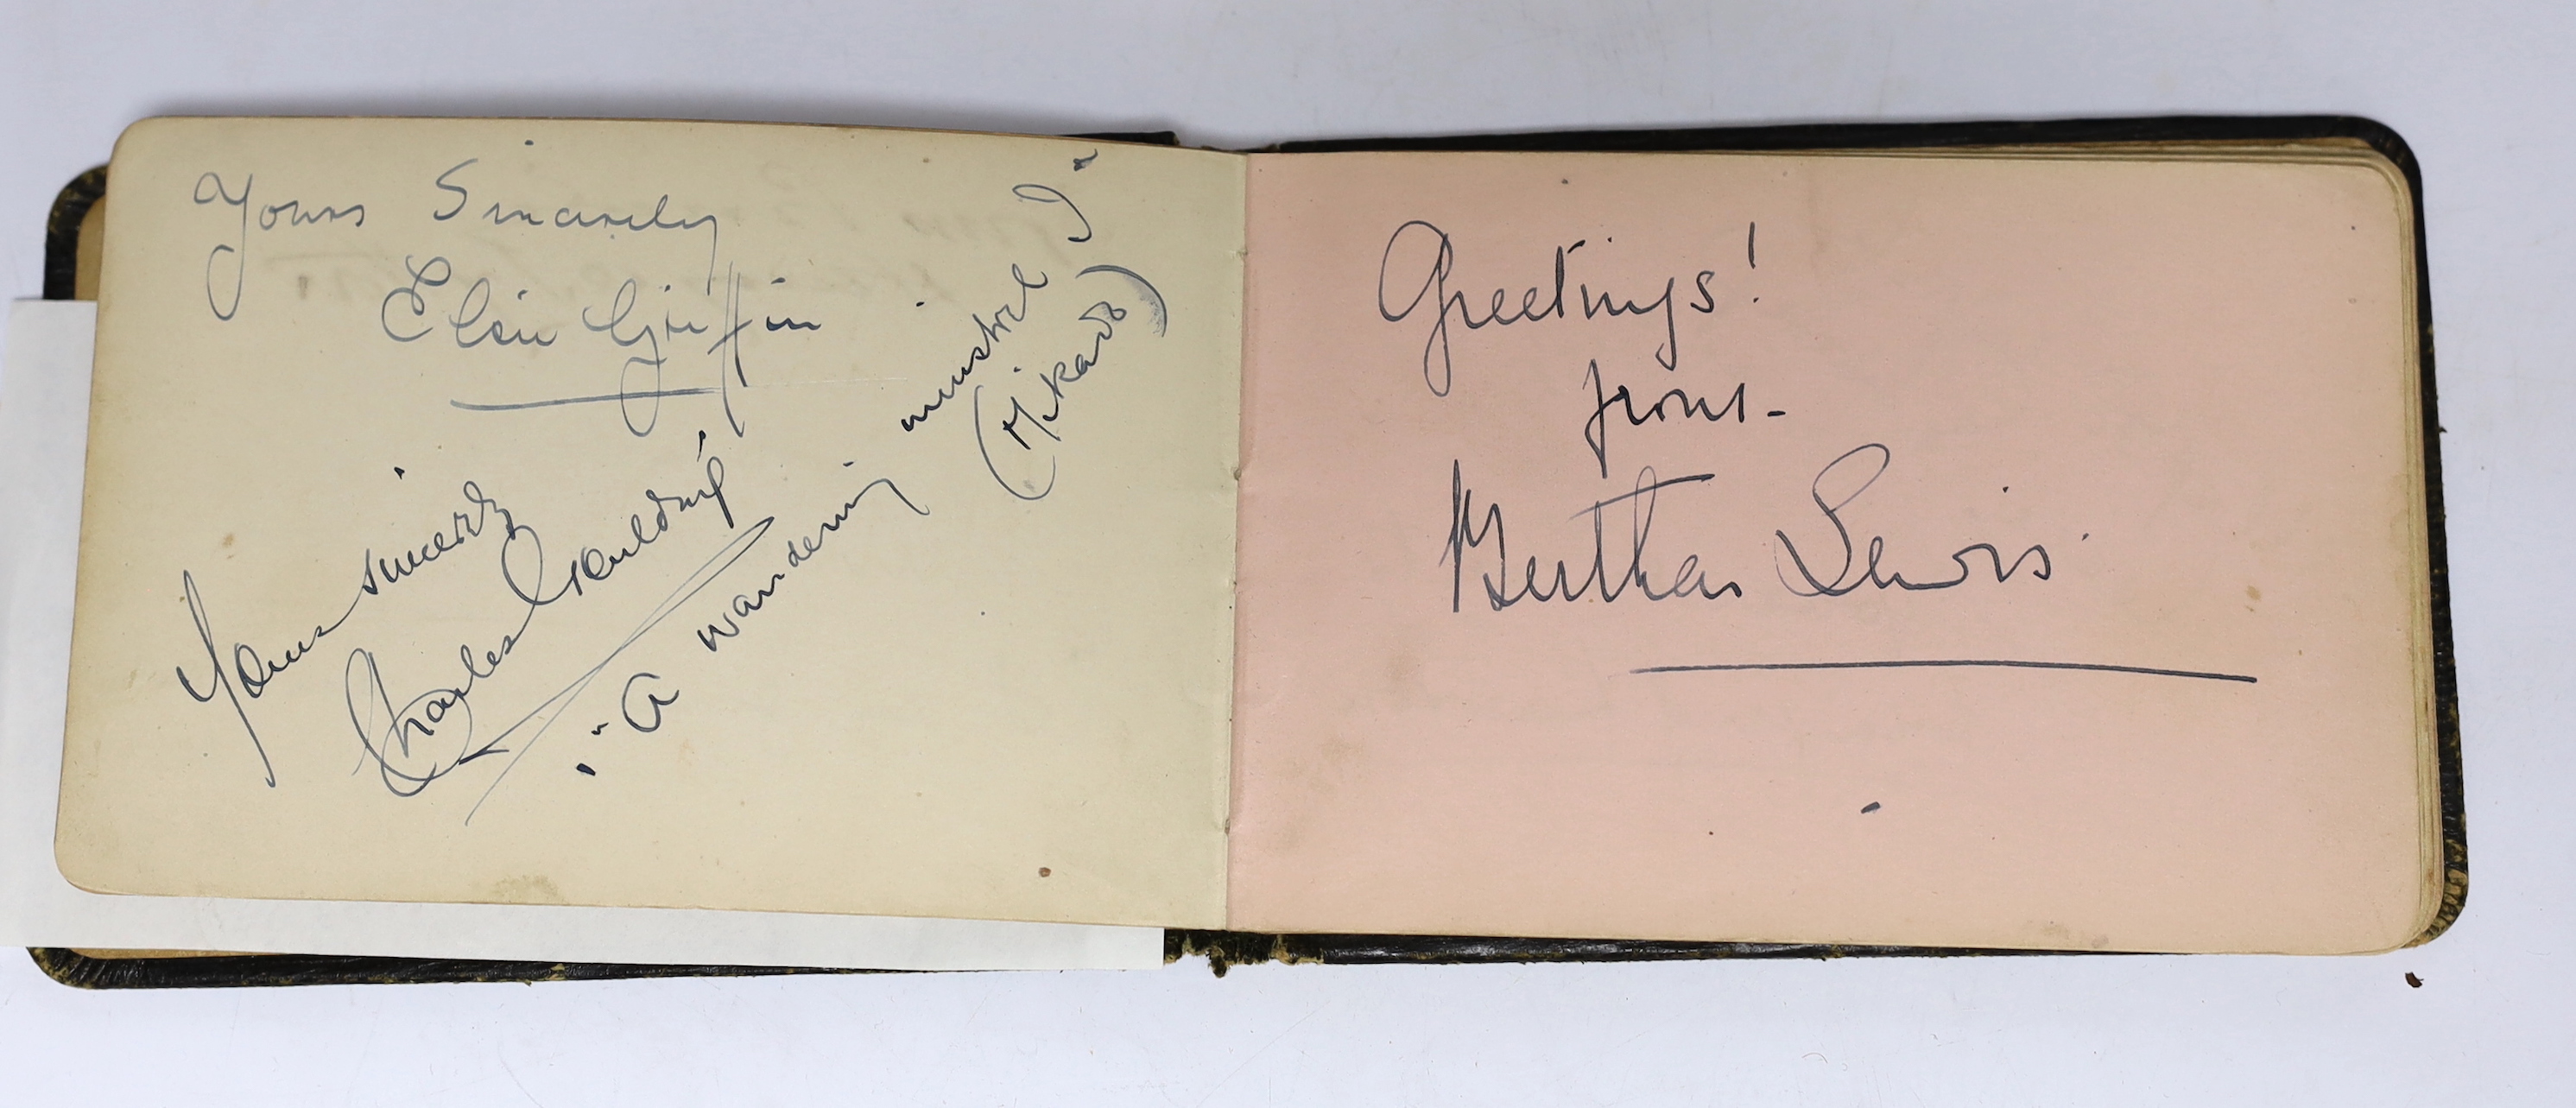 Yours Sincerely
Elsie Griffin
Yours sincerely
Charles Goulding
"A wandering minstrel I"
(Mikado)
Greetings!
from-
Bertha Lewis.